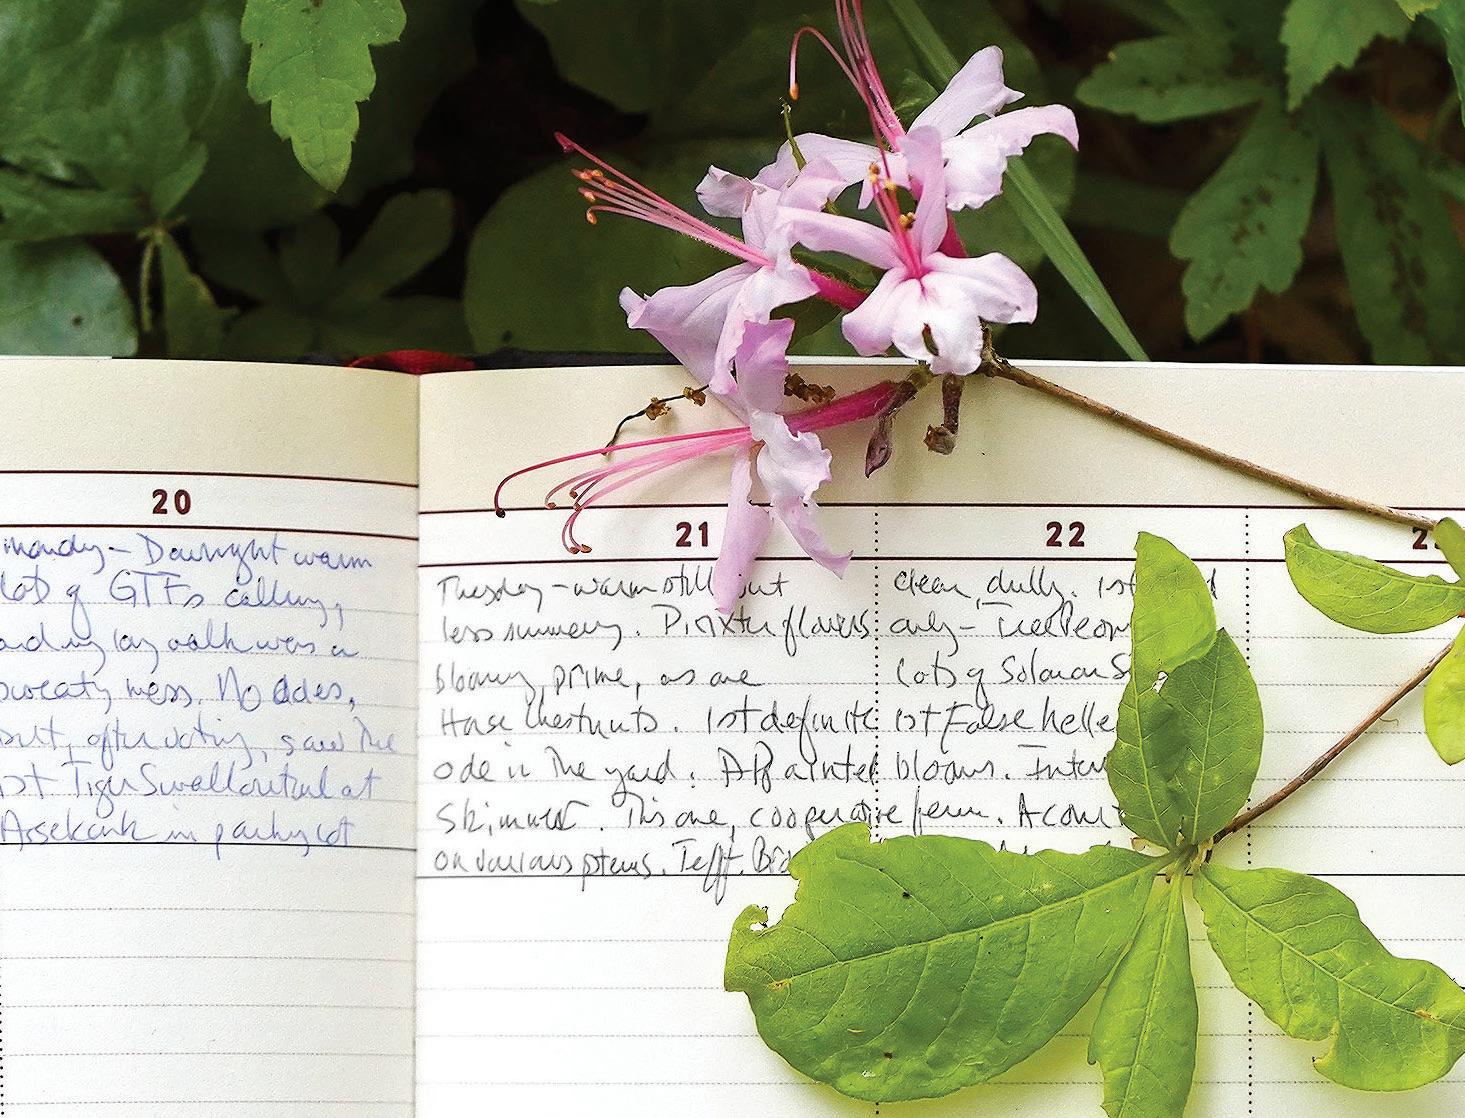 20
Monday - Downright warm
lots of GTFs calling,
and my walk was a
sweaty mess. No odes,
but, after voting, saw the
1st Tiger Swallowtail at
in parking lot
21
Tuesday - warm still but
less summery. Pinxter flowers
bloomy prime, as are
Horse Chestnuts. 1st definite
ode in the yard. A Painted
Skimmer. This one, cooperative
on various stems. Tefft.
22
clear, 1st
only - Tree Peony
lots of Solomon S
1st False helle
blooms.
fern. A
2